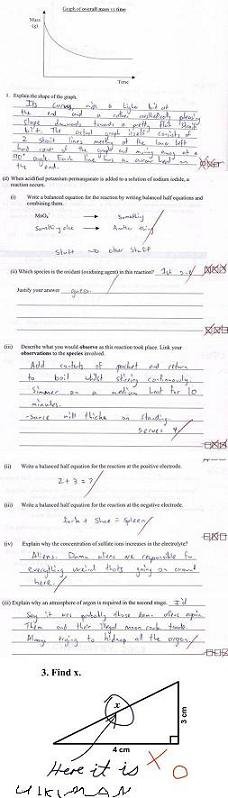 Graph of overall mass vs time
Mass
(g)
Time
1. Explain the shape of the graph.
Its curvey, with a higher bit at
the end and a rather aesthetically pleasing
slope downwards towards a pretty flat straight
bit. The actual graph itself consists of
2 strait lines meeting at the lower left
hand corner of the graph and moving away at a
90° angle. Each line has an arrow head on
the end.
(d) When acidified potassium permanganate is added to a solution of sodium iodide, a
reaction occurs.
(i) Write a balanced equation for the reaction by writing balanced half equations and
combining them.
MnO₄⁻ → Something
Something else → Another thing
Stuff → other stuff
(ii) Which species is the oxidant (oxidising agent) in this reaction? 1st one
Justify your answer guess.
(iii) Describe what you would observe as this reaction took place. Link your
observations to the species involved.
Add contents of packet and return
to boil whilst stirring continuously.
Simmer on a medium heat for 10
minutes.
-sauce will thicken on standing.
serves 4
(ii) Write a balanced half equation for the reaction at the positive electrode.
2 + 3 = ?
(iii) Write a balanced half equation for the reaction at the negative electrode.
= spleen
(iv) Explain why the concentration of sulfate ions increases in the electrolyte?
Aliens. Damn aliens are responsible for
everything weird thats going on around
here.
(iii) Explain why an atmosphere of argon is required in the second stage. I'd
Say it was probably those damn aliens again.
Them and their illegal moon rock trade.
Always trying to kidnap all the argon.
3. Find x.
x
3 cm
4 cm
Here it is
X O